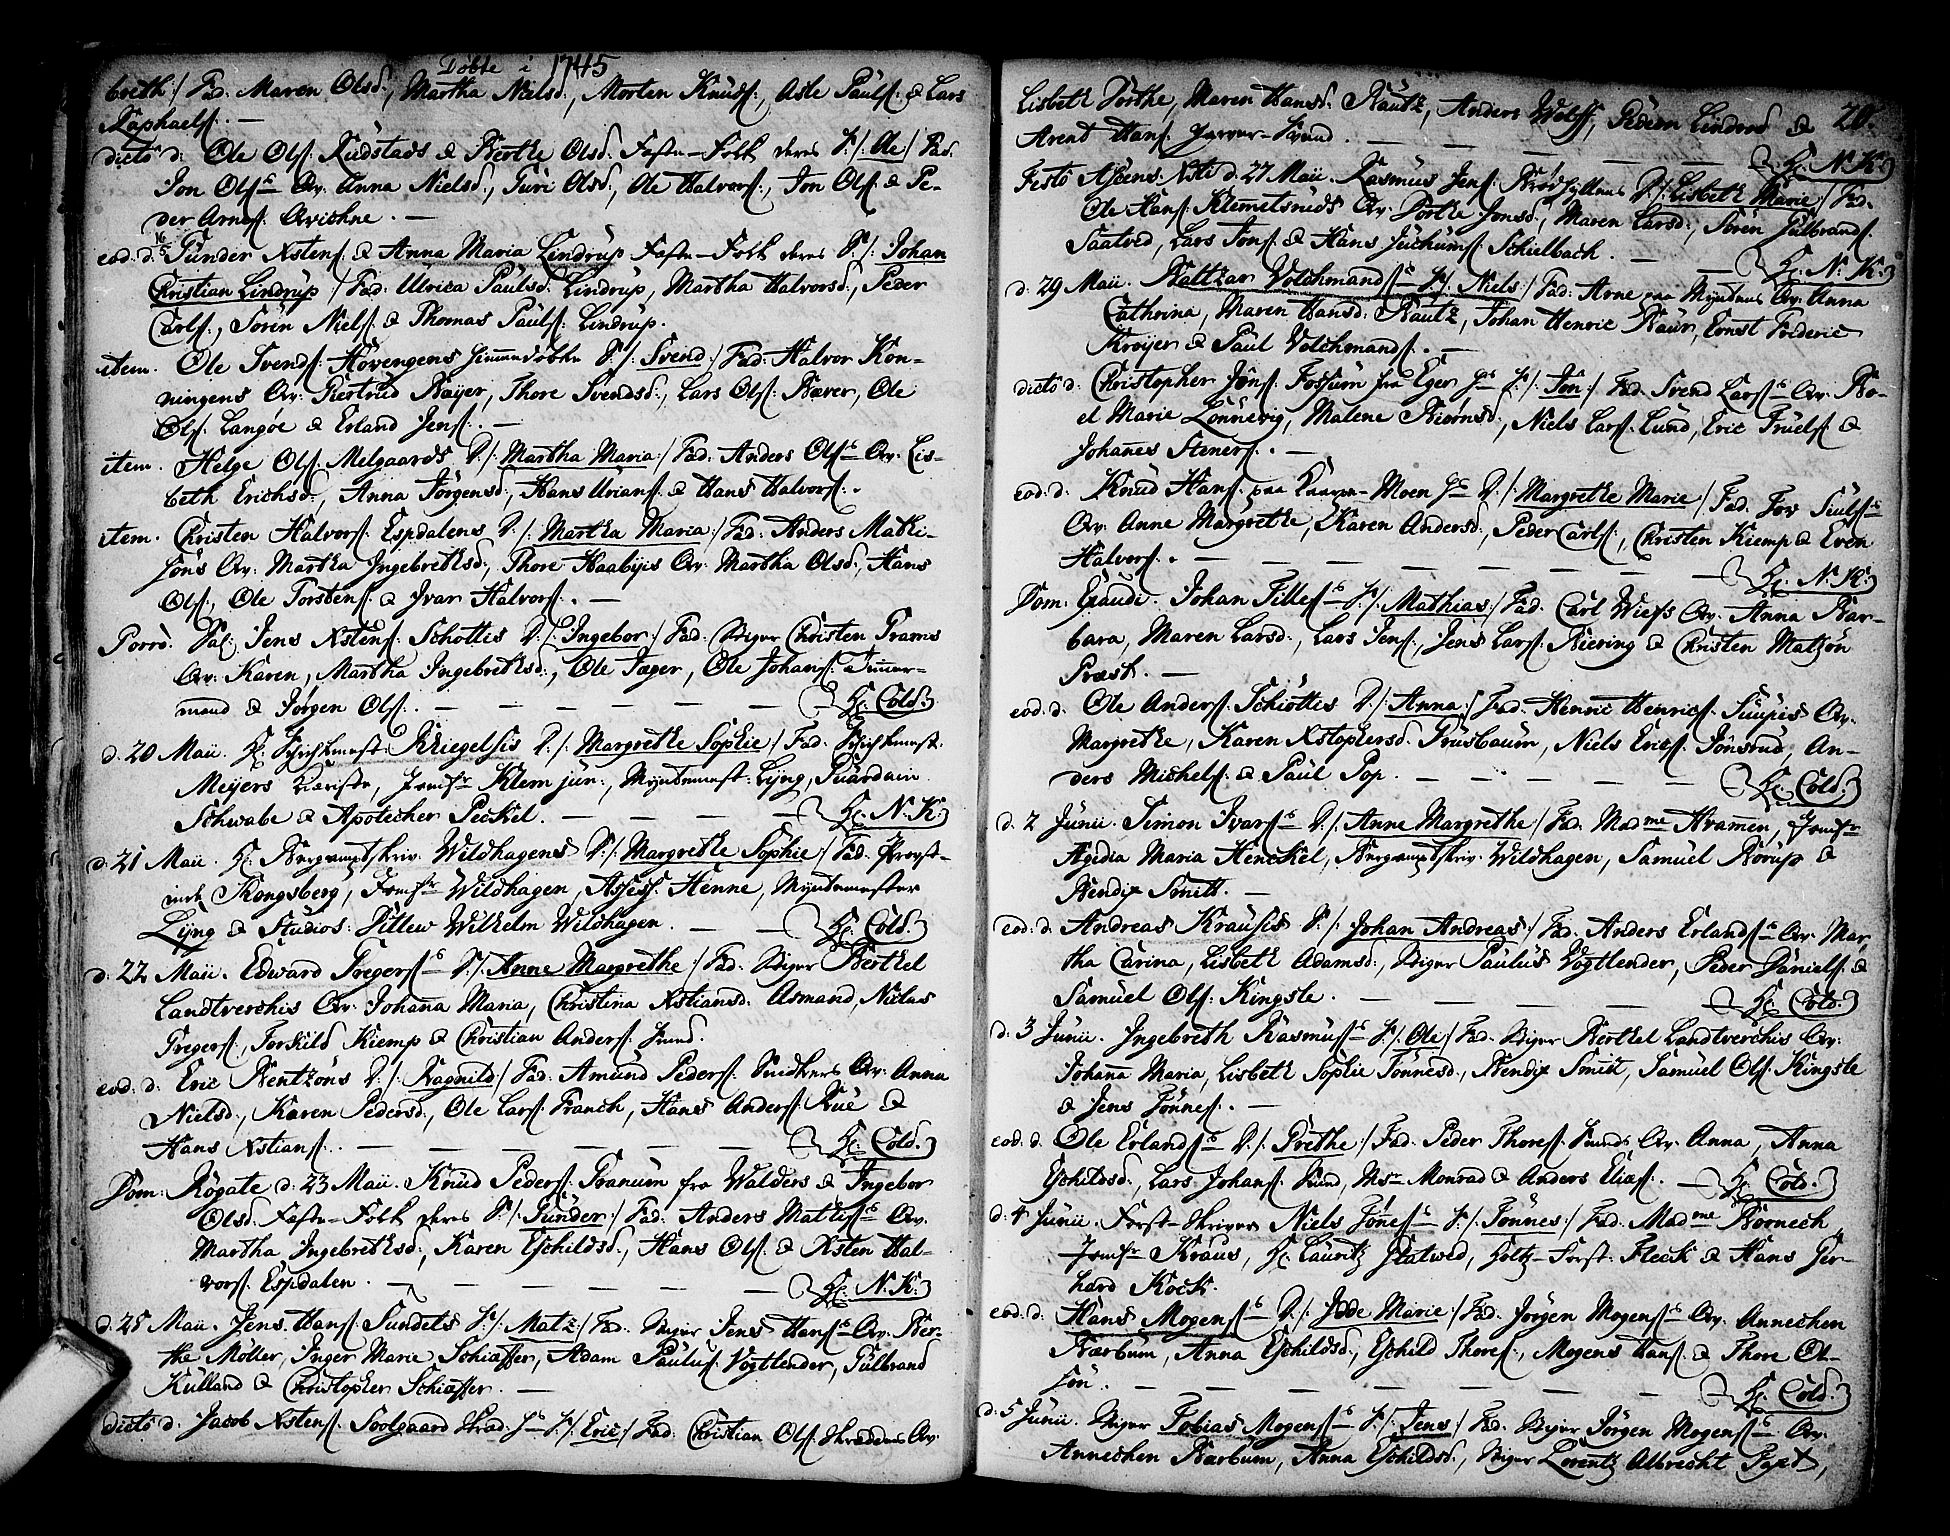 Döbte i 1745
breth:/ Fad: Maren Olsd:, Martha Nielsd:, Morten Knuds:, Asle Pauls: & Lars
Raphaels:. —
dicto d: Ole Ols: Rudstads & Berthe Olsd: Fæste-Folk deres S:/: Ole/ Fad:
Jon Ols: Qv: Anna Nielsd:, Turi Olsd:, Ole Halvors:, Jon Ols: & Pe-
der Arnes: Qvichne. —
eod. d. 16/5 Gunder Xstens: & Anna Maria Lindrup Fæste-Folk deres S:/: Johan
Christian Lindrup:/ Fad: Ulrica Paulsd: Lindrup, Martha Halvorsd:, Peder
Carls:, Sören Niels: & Thomas Pauls: Lindrup.
item. Ole Svends: Hövengens hjemmedöbte S:/: Svend:/ Fad: Halvor Kon-
ningens Qv: Giertrud Bøyer, Thore Svendsd:, Lars Ols: Bæver, Ole
Ols: Langöe & Erland Jens:. —
item. Helge Ols: Melgaards D:/: Martha Maria:/ Fad: Anders Ols: Qv: Lis-
beth Erichsd:, Anna Jörgensd:, Hans Urians: & Hans Halvors:.
item. Christen Halvors: Espdalens D:/: Martha Maria:/ Fad: Anders Mathi-
söns Qv: Martha Ingebrethsd:, Thore Haabyis Qv: Martha Olsd:, Hans
Ols:, Ole Torstens: & Ivar Halvors:. —
Porro. Sal: Jens Xstens: Schottis D:/: Ingebor:/ Fad: Stiger Christen Grams
Qv: Karen, Martha Ingebrethsd:, Ole Jæger, Ole Johans: Timmer-
mand & Jörgen Ols:. — — — — — — Hr: Cold:
d: 20 Maii. Hr: Schichtmest: Kriegelsis D:/: Margrethe Sophie:/ Fad: Schichtmest:
Meyers Kiæreste, Jomfr Klem jun:, Myntemest: Lyng, Guardein
Schwabe & Apothecher Peckel. — — — — Hr: N: K:
d: 21 Maii. Hr: Bergamptskriv: Wildhagens D:/: Margrethe Sophie:/ Fad: Provst-
inde Kongsberg, Jomfr Wildhagen, Assess: Henne, Myntemester
Lyng & Studios: Dittlew Wilhelm Wildhagen. — — Hr: Cold:
d: 22 Maii. Edward Gregers: D:/: Anne Margrethe:/ Fad: Stiger Berthel
Landtverchis Qv: Johanna Maria, Christina Xstiansd: Asmand, Niclas
Gregers:, Torkild Kiemp & Christian Anders: Smed.
eod: d: Eric Bentzöns D:/: Ragnild:/ Fad: Amund Peders: Snidkers Qv: Anna
Nielsd:, Karen Pedersd:, Ole Lars: Franch, Hans Anders: Rue &
Hans Xstians:. — — — — — — — Hr: Cold:
Dom: Rogate d: 23 Maii. Knud Peders: Granum fra Walders & Ingebor
Olsd: Fæste-Folk deres S:/: Gunder:/ Fad: Anders Mathis: Qv:
Martha Ingebrethsd:, Karen Eschildsd:, Hans Ols: & Xsten Hal-
vors: Espdalen. — — — — — — Hr: N: K:
d: 25 Maii. Jens Hans: Sundets S:/: Matz:/ Fad: Stiger Jens Hans: Qv: Ber-
the Möller, Inger Marie Schiæffer, Adam Paulus Vogtlender, Gulbrand
Kulland & Christopher Schiæffer. —
dicto d: Jacob Xstens: Soolgaard S:/: Eric:/ Fad: Christian Ols: Skredders Qv:
20.
Lisbeth Dorthe, Maren Hansd: Rautz, Anders Wolff, Peder Lindrod &
Arent Hans: — — — — — Hr: N: K:
Festo Ascens: Xsti d: 27 Maii. Rasmus Jens: D:/: Lisbeth Marie:/ Fad:
Ole Hans: Klemetsruds Qv: Dorthe Jonsd:, Maren Larsd:, Sören Gulbrands:
Saatved, Lars Jons: & Hans Juchum: Schielbach. — — Hr: N: K:
d: 29 Maii. Baltzar Volchmands: S:/: Niels:/ Fad: Arne paa Myntens Qv: Anna
Cathrina, Maren Hansd: Rautz, Johan Henric Baur, Ernst Frideric
Kroijer & Paul Volchmands:. —
dicto d: Christopher Jöns: Fossum fra Eger S:/: Jon:/ Fad: Svend Lars: Qv: Bo-
el Marie Lönnevig, Malene Biörnsd:, Niels Lars: Lund, Eric Truels: &
Johannes Steners:. —
eod: d: Knud Hans: paa Moen D:/: Margrethe Marie:/ Fad: Qv: Anne Margrethe, Karen Andersd:, Peder Carls:, Christen Kiemp & Even
Halvors:. — — — — — — — — Hr: N: K:
Dom: Exaudi. Johan Tilles: S:/: Mathias:/ Fad: Carl Wiess Qv: Anna Bar-
bara, Maren Larsd:, Lars Jens:, Jens Lars: Biering & Christen Matzön
Præst. —
eod. d. Ole Anders: Schiöttis D:/: Anna:/ Fad: Henric Henrics: Qv:
Margrethe, Karen Xstophersd: Grusbaum, Niels Erics: Jönsrud, An-
ders Michels: & Paul Pop. — — — — — Hr: Cold:
d: 2 Junii. Simon Ivars: D:/: Anne Margrethe:/ Fad: Madme Hrammen, Jomfr
Ægidia Maria Henckel, Bergamptskriv: Wildhagen, Samuel Borup &
Bendix Smitt. —
eod: d. Andreas Krausis S:/: Johan Andreas:/ Fad: Anders Erlands: Qv: Mar-
tha Carina, Lisbeth Adamsd:, Stiger Paulus Vogtlender, Peder Daniels: &
Samuel Ols: Kingste. — — — — — Hr: Cold:
d: 3 Junii. Ingebreth Rasmus: S:/: Ole:/ Fad: Stiger Berthel Landtverchis Qv:
Johanna Maria, Lisbeth Sophie Tönnesd:, Bendix Smitt, Samuel Ols: Kingste
& Jens Tönnes:. —
eod: d. Ole Erlands: D:/: Grethe:/ Fad: Peder Thores: Smeds Qv: Anna, Anna
Eschildsd:, Lars Johans: Lund, Mr Monrad & Anders Elias:. — Hr: Cold:
d: 4 Junii. Forst-Skriver Niels Tönes: S:/: Tönnes:/ Fad: Madme Borneck,
Jomfr Kraus, Hr: Lauritz Flatved, Holtz-Först: Fleck & Hans Ger-
hard Kock.
eod: d: Hans Mogens: D:/: Jdde Marie:/ Fad: Jörgen Mogens: Qv: Annechen
Barbum, Anna Eschildsd:, Eschild Thores:, Mogens Hans: & Thore Ol-
sön. — — — — — — — — Hr: Cold:
d: 5 Junii. Stiger Tobias Mogens: S:/: Jens:/ Fad: Stiger Jörgen Mogens: Qv:
Annechen Barbum, Anna Eschildsd:, Stiger Lorentz Albrecht